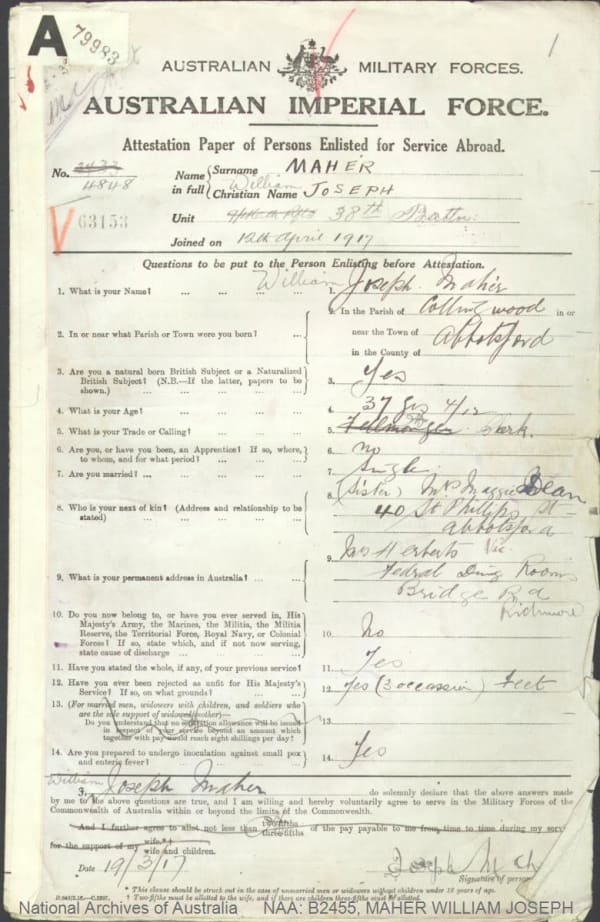 A 79983
1
AUSTRALIAN MILITARY FORCES.
AUSTRALIAN IMPERIAL FORCE.
Attestation Paper of Persons Enlisted for Service Abroad.
No. 2433 Name in full { Surname MAHER
4848 Christian Name William JOSEPH
63153 Unit 38th Battn:
Joined on 12th April 1917
Questions to be put to the Person Enlisting before Attestation.
1. What is your Name? ... ... ... ... 1. William Joseph Maher
2. In or near what Parish or Town were you born? ... 2. In the Parish of Collingwood in or
near the Town of Abbotsford
in the County of
3. Are you a natural born British Subject or a Naturalized
British Subject? (N.B.—If the latter, papers to be
shown.) ... ... ... ... 3. Yes
4. What is your Age? ... ... ... ... 4. 37 yrs 4/12
5. What is your Trade or Calling? ... ... ... 5. Fellmonger
6. Are you, or have you been, an Apprentice? If so, where,
to whom, and for what period? ... ... 6. no
7. Are you married? ... ... ... ... 7. Single
8. Who is your next of kin? (Address and relationship to be
stated) ... ... ... ... 8. (Sister) Mrs Maggie Dean
40 St Phillips St
Abbotsford
Vic
9. What is your permanent address in Australia? ... ... 9. Herberts
Fedral Dinig Rooms
Bridge Rd
Richmond
10. Do you now belong to, or have you ever served in, His
Majesty's Army, the Marines, the Militia, the Militia
Reserve, the Territorial Force, Royal Navy, or Colonial
Forces? If so, state which, and if not now serving,
state cause of discharge ... ... ... 10. No
11. Have you stated the whole, if any, of your previous service? 11. Yes
12. Have you ever been rejected as unfit for His Majesty's
Service? If so, on what grounds? ... ... 12. Yes (3 occassion) Feet
13. (For married men, widowers with children, and soldiers who
are the sole support of widowed mother)—
Do you understand that no separation allowance will be issued
in respect of your service beyond an amount which
together with pay would reach eight shillings per day? 13.
14. Are you prepared to undergo inoculation against small pox
and enteric fever? ... ... ... ... 14. Yes
I, William Joseph Maher do solemnly declare that the above answers made
by me to the above questions are true, and I am willing and hereby voluntarily agree to serve in the Military Forces of the
Commonwealth of Australia within or beyond the limits of the Commonwealth.
And I further agree to allot not less than two-fifths three-fifths of the pay payable to me from time to time during my serv
for the support of my wife.*†
wife and children.
Date 19/3/17 Joseph Mah
Signature of person
* This clause should be struck out in the case of unmarried men or widowers without children under 18 years of age.
† Two-fifths must be allotted to the wife, and if there are children three-fifths must be allotted.
National Archives of Australia NAA: B2455, MAHER WILLIAM JOSEPH